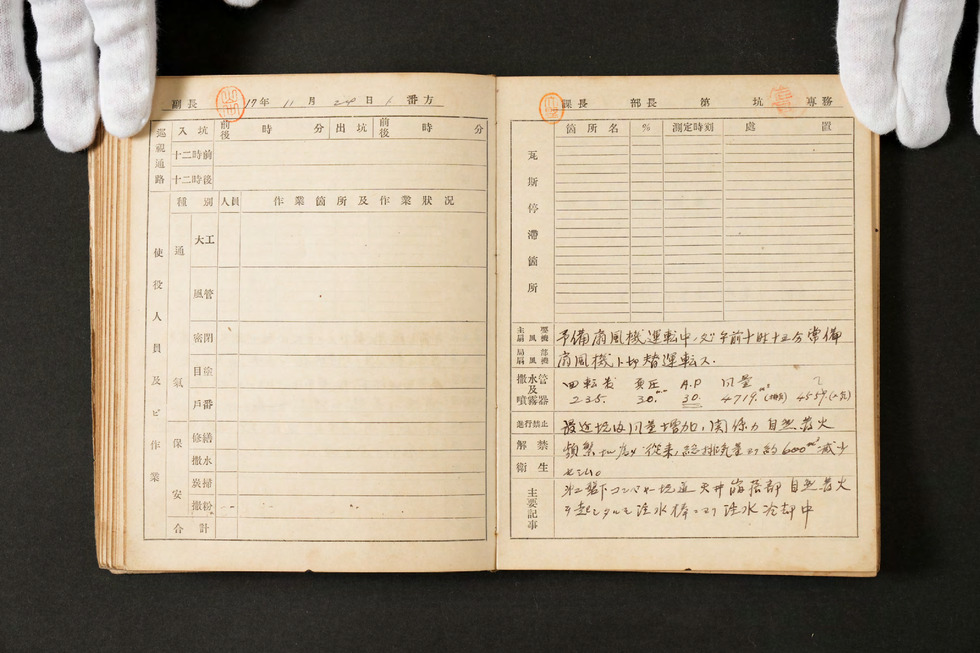 副長 17年 11月 24日 1番方
巡視通路 入坑 前後 時 分 出坑 前後 時 分
十二時前
十二時後
使役人員及ビ作業
種別 人員 作業箇所及作業狀况
通氣
大工
風管
密閉
目塗
戸番
保安
修繕
撒水
炭掃
撒粉
合計
課長 部長 第 坑 專務
瓦斯停滯箇所
箇所名 % 測定時刻 處置
主要扇風機 予備扇風機運転中ノ処午前十時十五分常備
局部扇風機 扇風機ト切替運転ス.
撒水管及噴霧器 回転数 負圧 A.P 风量
235. 30. 30. 4719. 4559.
進行禁止 最近坑内风量増加ノ関係カ自然発火
解禁 頻繁ナル為メ従来ノ総排気量ヨリ約600m³减少
衛生 セシム。
主要記事 卸コンベヤー坑道天井崩落部自然発火
ヲ起シタルモ注水棒ニヨリ注水冷却中